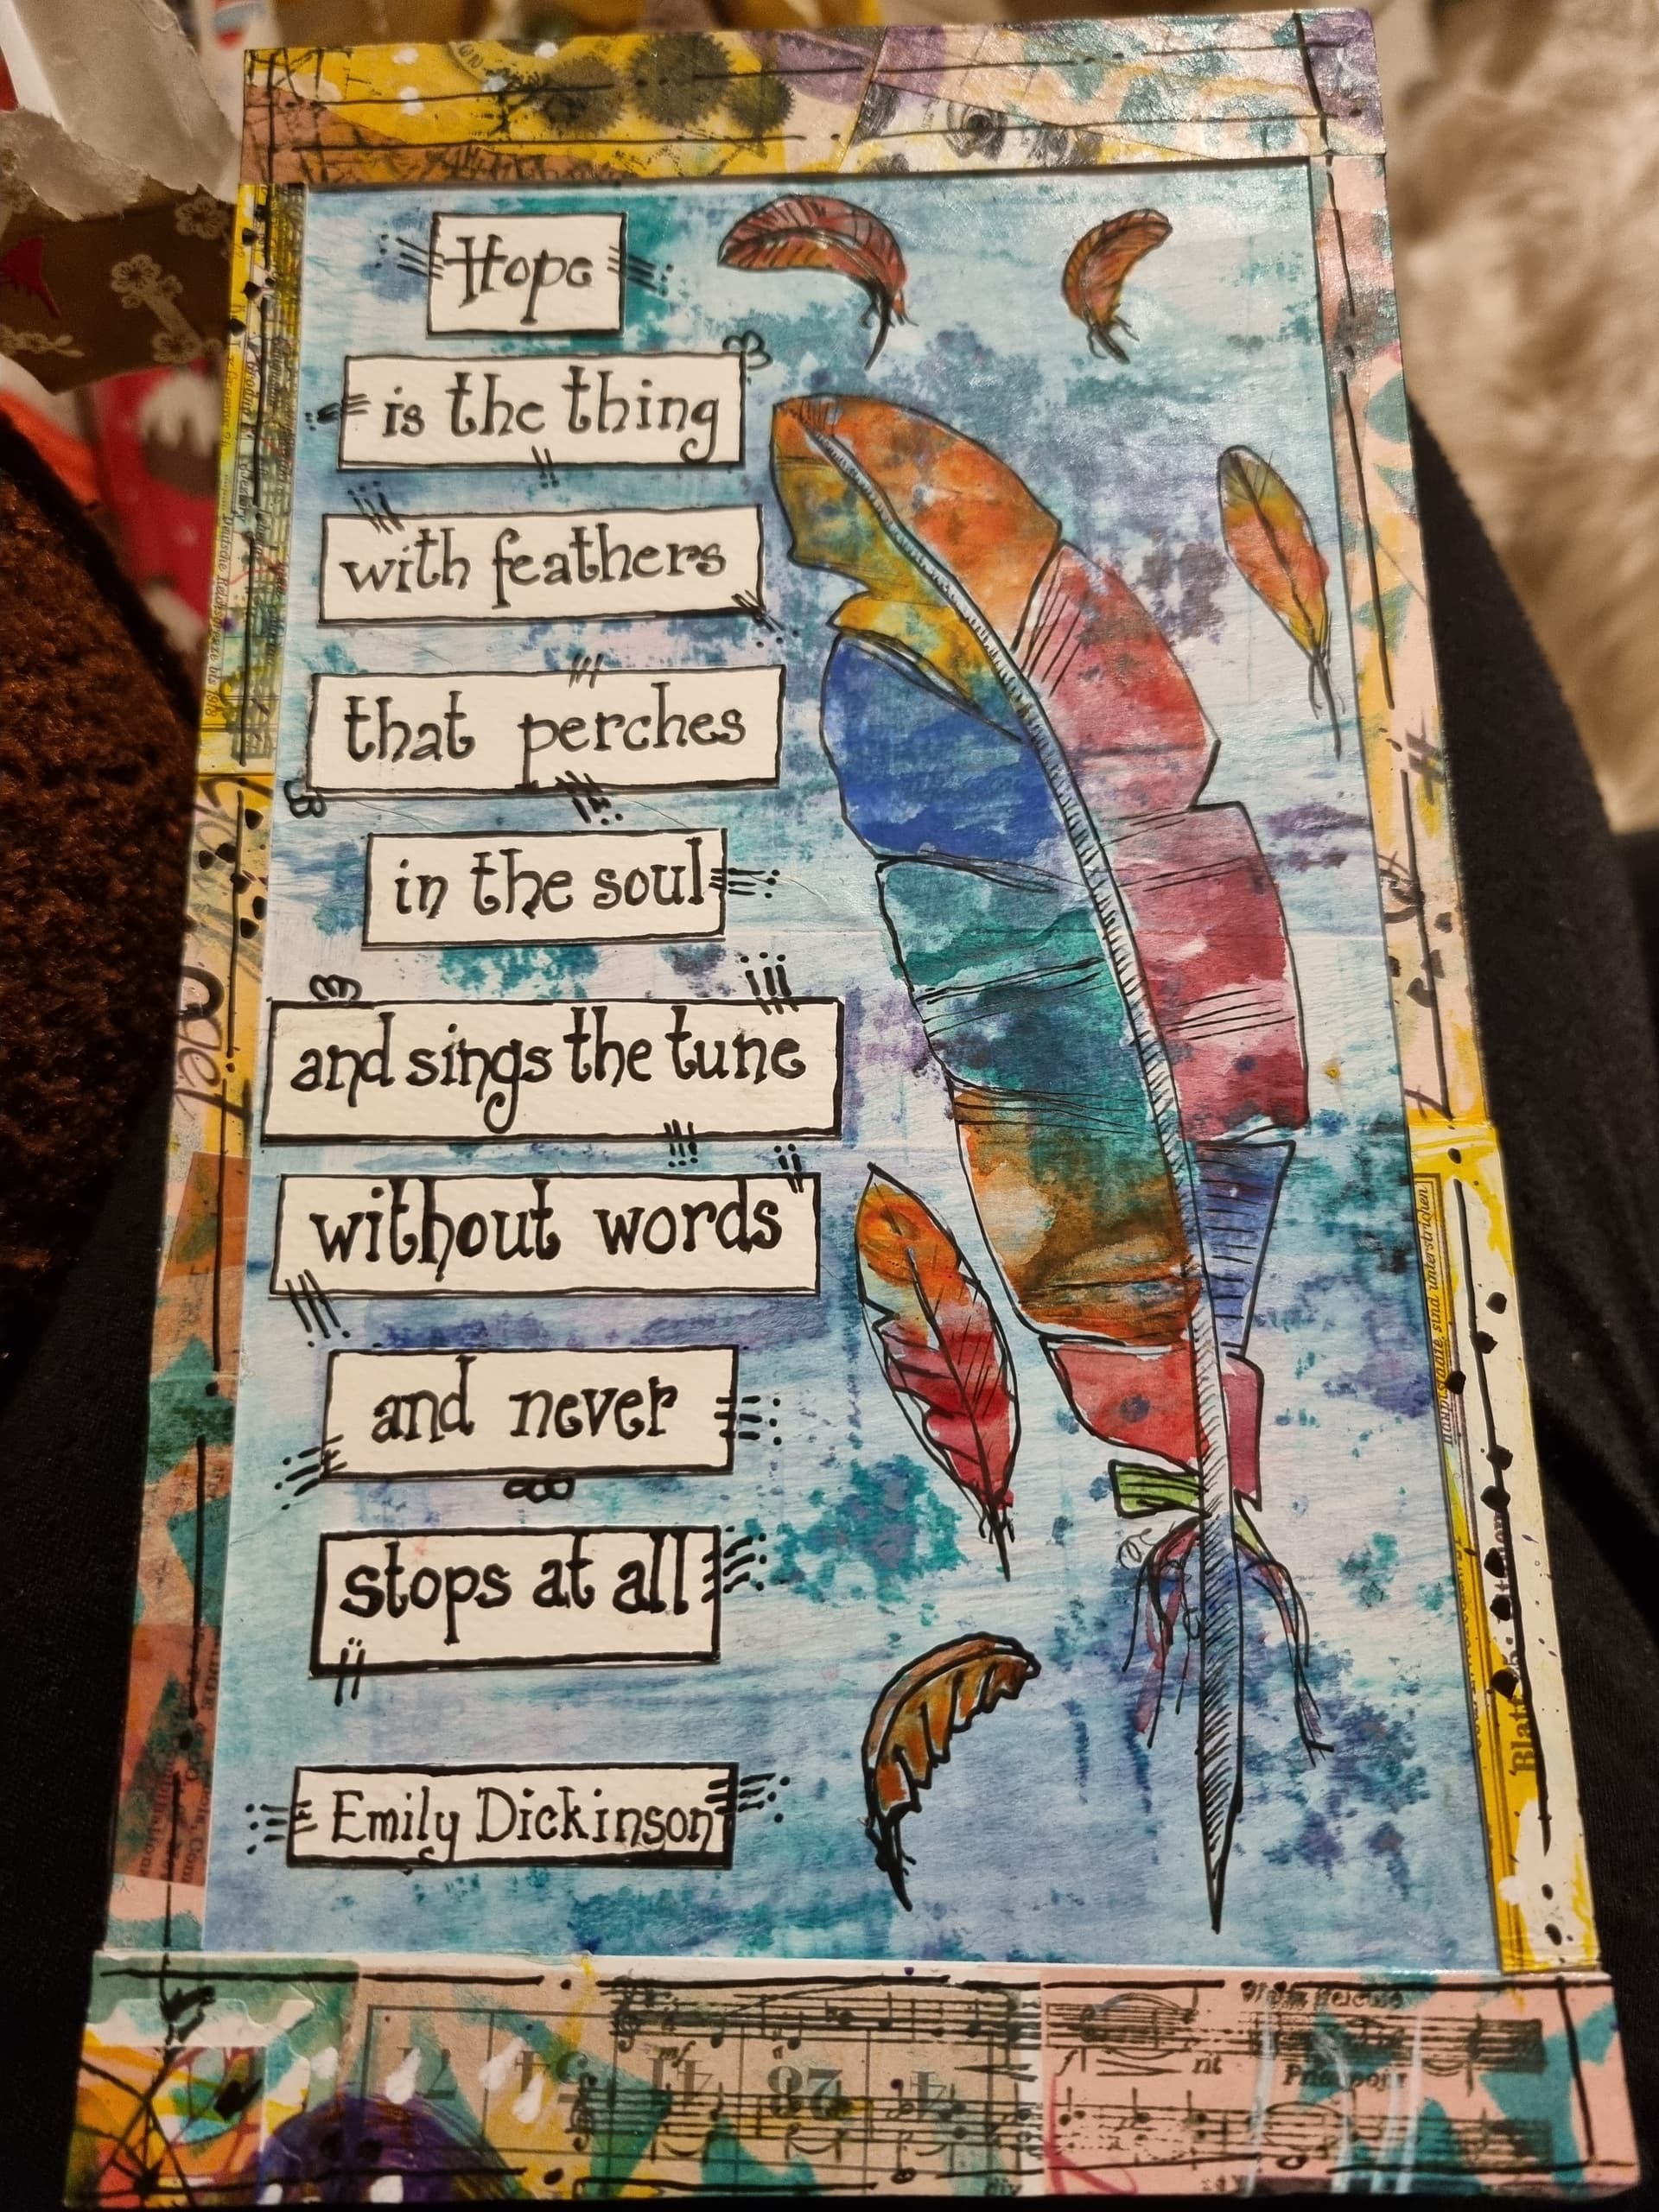 Hope
is the thing
with feathers
that perches
in the soul
and sings the tune
without words
and never
stops at all
Emily Dickinson
hauptstädte sind unterstrichen
mf
f
rit